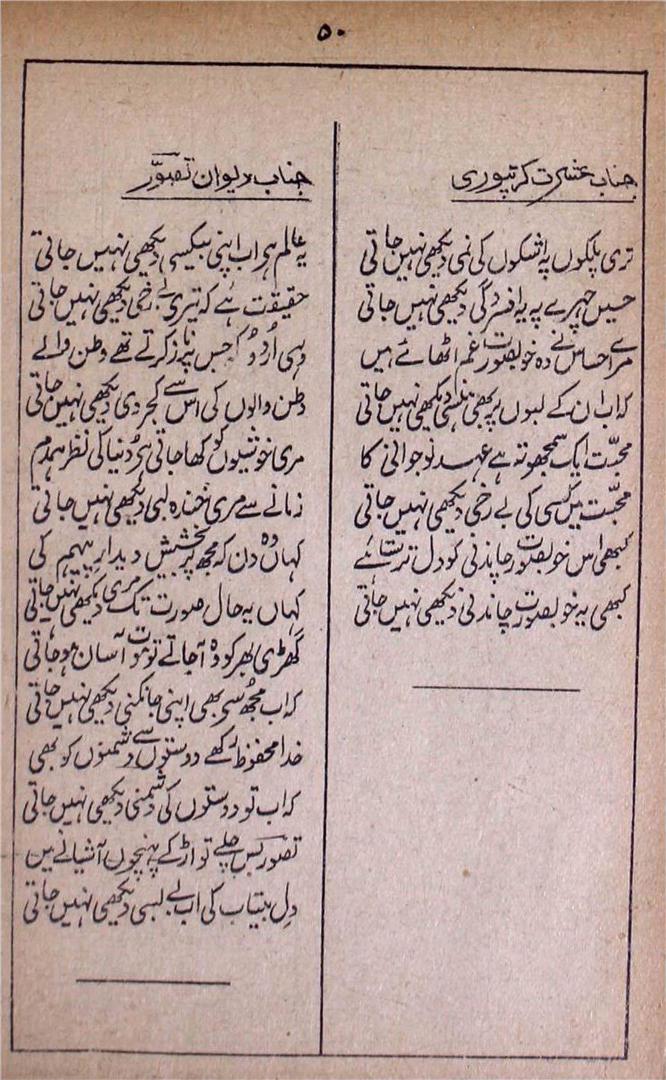 ۵۰
جناب عشرت کرتپوری
تری پلکوں پہ اشکوں کی نمی دیکھی نہیں جاتی
حسیں چہرے پہ یہ افسردگی دیکھی نہیں جاتی
مرے احساس نے وہ خوبصورت غم اٹھائے ہیں
کہ اب ان کے لبوں پر بھی ہنسی دیکھی نہیں جاتی
محبّت ایک سمجھوتہ ہے عہدِ نوجوانی کا
محبّت میں کسی کی بے رخی دیکھی نہیں جاتی
کبھی اس خوبصورت چاندنی کو دل ترستا ہے
کبھی یہ خوبصورت چاندنی دیکھی نہیں جاتی
جناب دیوان تصوّر
یہ عالم ہے اب اپنی بیکسی دیکھی نہیں جاتی
حقیقت ہے کہ تیری بے رخی دیکھی نہیں جاتی
وہی اُردو کہ جس پر ناز کرتے تھے وطن والے
وطن والوں کی اس سے کجروی دیکھی نہیں جاتی
مری خوشیوں کو کھا جاتی ہے دُنیا کی نظر ہمدم
زمانے سے مری خندہ لبی دیکھی نہیں جاتی
کہاں وہ دن کہ مجھ پر بخشیش دیدارِ پیہم کی
کہاں یہ حال صورت تک مری دیکھی نہیں جاتی
گھڑی بھر کو وہ آجاتے تو موت آسان ہو جاتی
کہ اب مجھ سے بھی اپنی جانکنی دیکھی نہیں جاتی
خدا محفوظ رکھے دوستوں سے دشمنوں کو بھی
کہ اب تو دوستوں کی دشمنی دیکھی نہیں جاتی
تصوّر بس چلے تو اڑ کے پہنچوں آشیانے میں
دلِ بیتاب کی اب بے بسی دیکھی نہیں جاتی